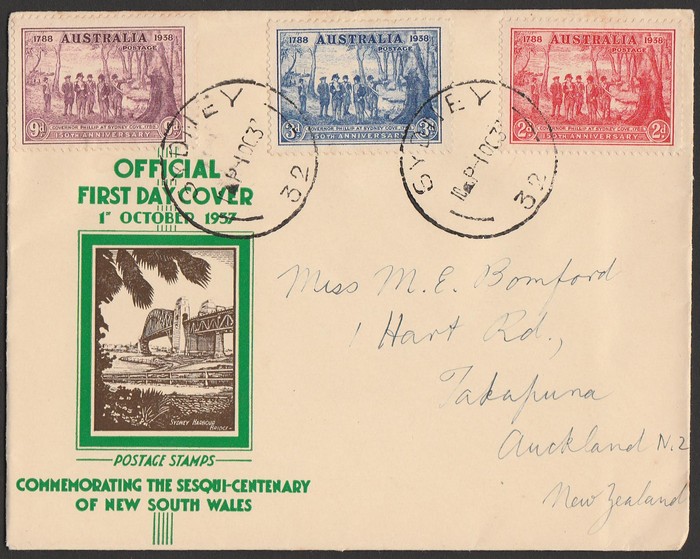 1788 AUSTRALIA 1938
POSTAGE
GOVERNOR PHILLIP AT SYDNEY COVE, 1788
9d 150TH ANNIVERSARY 9d
1788 AUSTRALIA 1938
POSTAGE
GOVERNOR PHILLIP AT SYDNEY COVE, 1788
3d 150TH ANNIVERSARY 3d
1788 AUSTRALIA 1938
POSTAGE
GOVERNOR PHILLIP AT SYDNEY COVE, 1788
2d 150TH ANNIVERSARY 2d
SYDNEY
P-1OC37
32
SYDNEY
P-1OC37
32
OFFICIAL
FIRST DAY COVER
1ST OCTOBER 1937
SYDNEY HARBOUR
BRIDGE
POSTAGE STAMPS
COMMEMORATING THE SESQUI-CENTENARY
OF NEW SOUTH WALES
Miss M. E. Bomford
1 Hart Rd.,
Takapuna
Auckland N.2
New Zealand